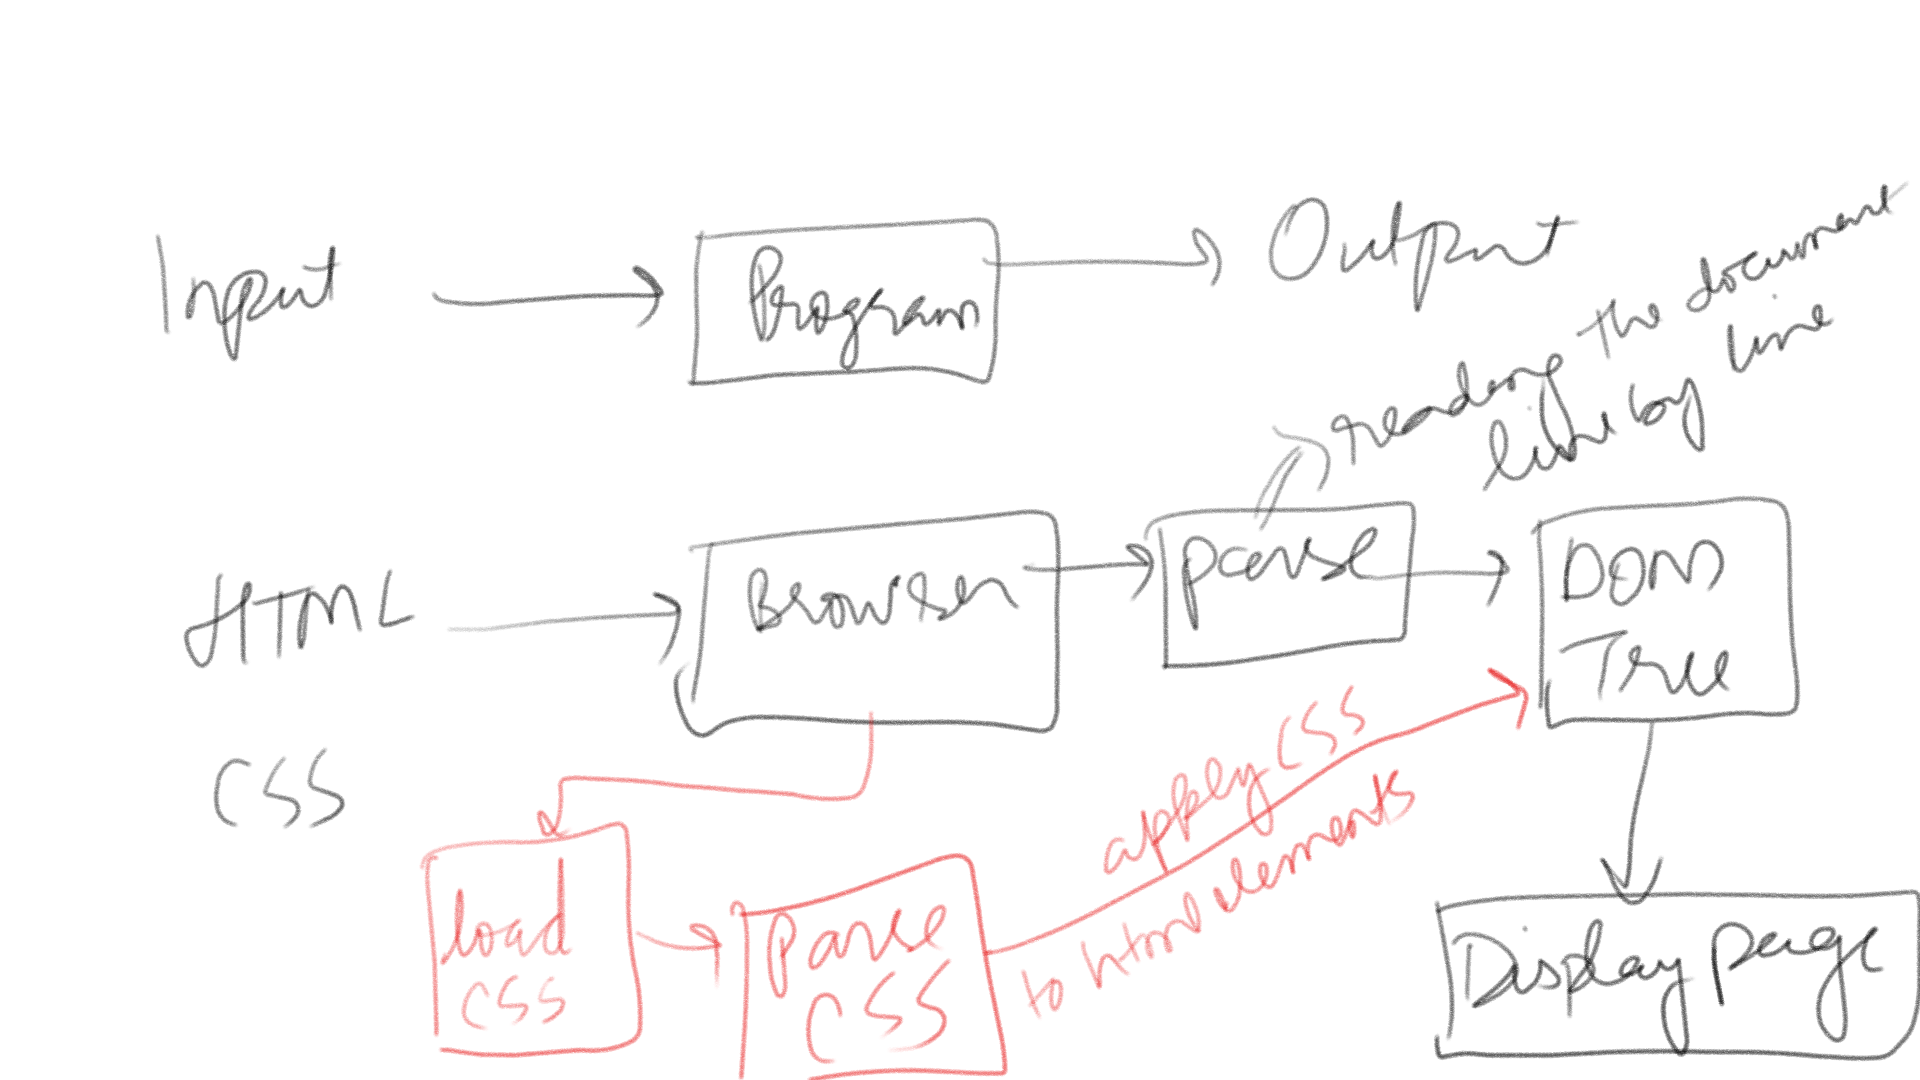 Input
Program
Output
HTML
Browser
parse
reading the document
line by line
DOM
Tree
CSS
load
CSS
Parse
CSS
apply CSS
to html elements
Display page